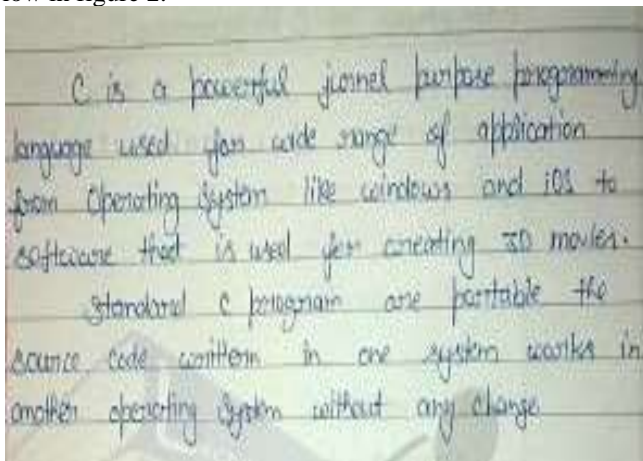 C is a powerful jurnel purpose programming
language used for wide range of application
from Operating System like windows and iOS to
software that is used for creating 3D movies.
Standard C program are portable the
source code written in one system works in
another operating System without any change